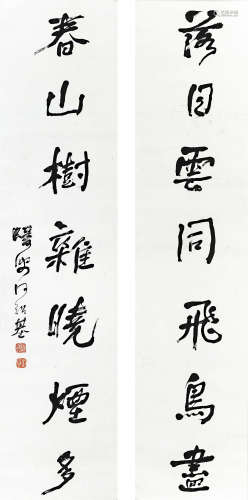 落日雲同飛鳥盡
春山樹雜曉煙多
蝯叟何紹基